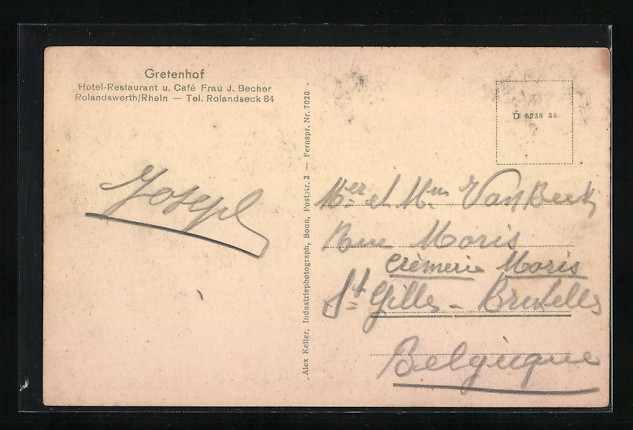 Gretenhof
Hotel-Restaurant u. Café Frau J. Becher
Rolandswerth/Rhein — Tel. Rolandseck 84
Joseph
Alex Keller, Industriephotograph, Bonn, Poststr. 3 — Fernspr. Nr. 7020
D 5238 35
Mr et Mme Van Beek
Rue Moris
Crèmerie Moris
St Gilles - Bruxelles
Belgique